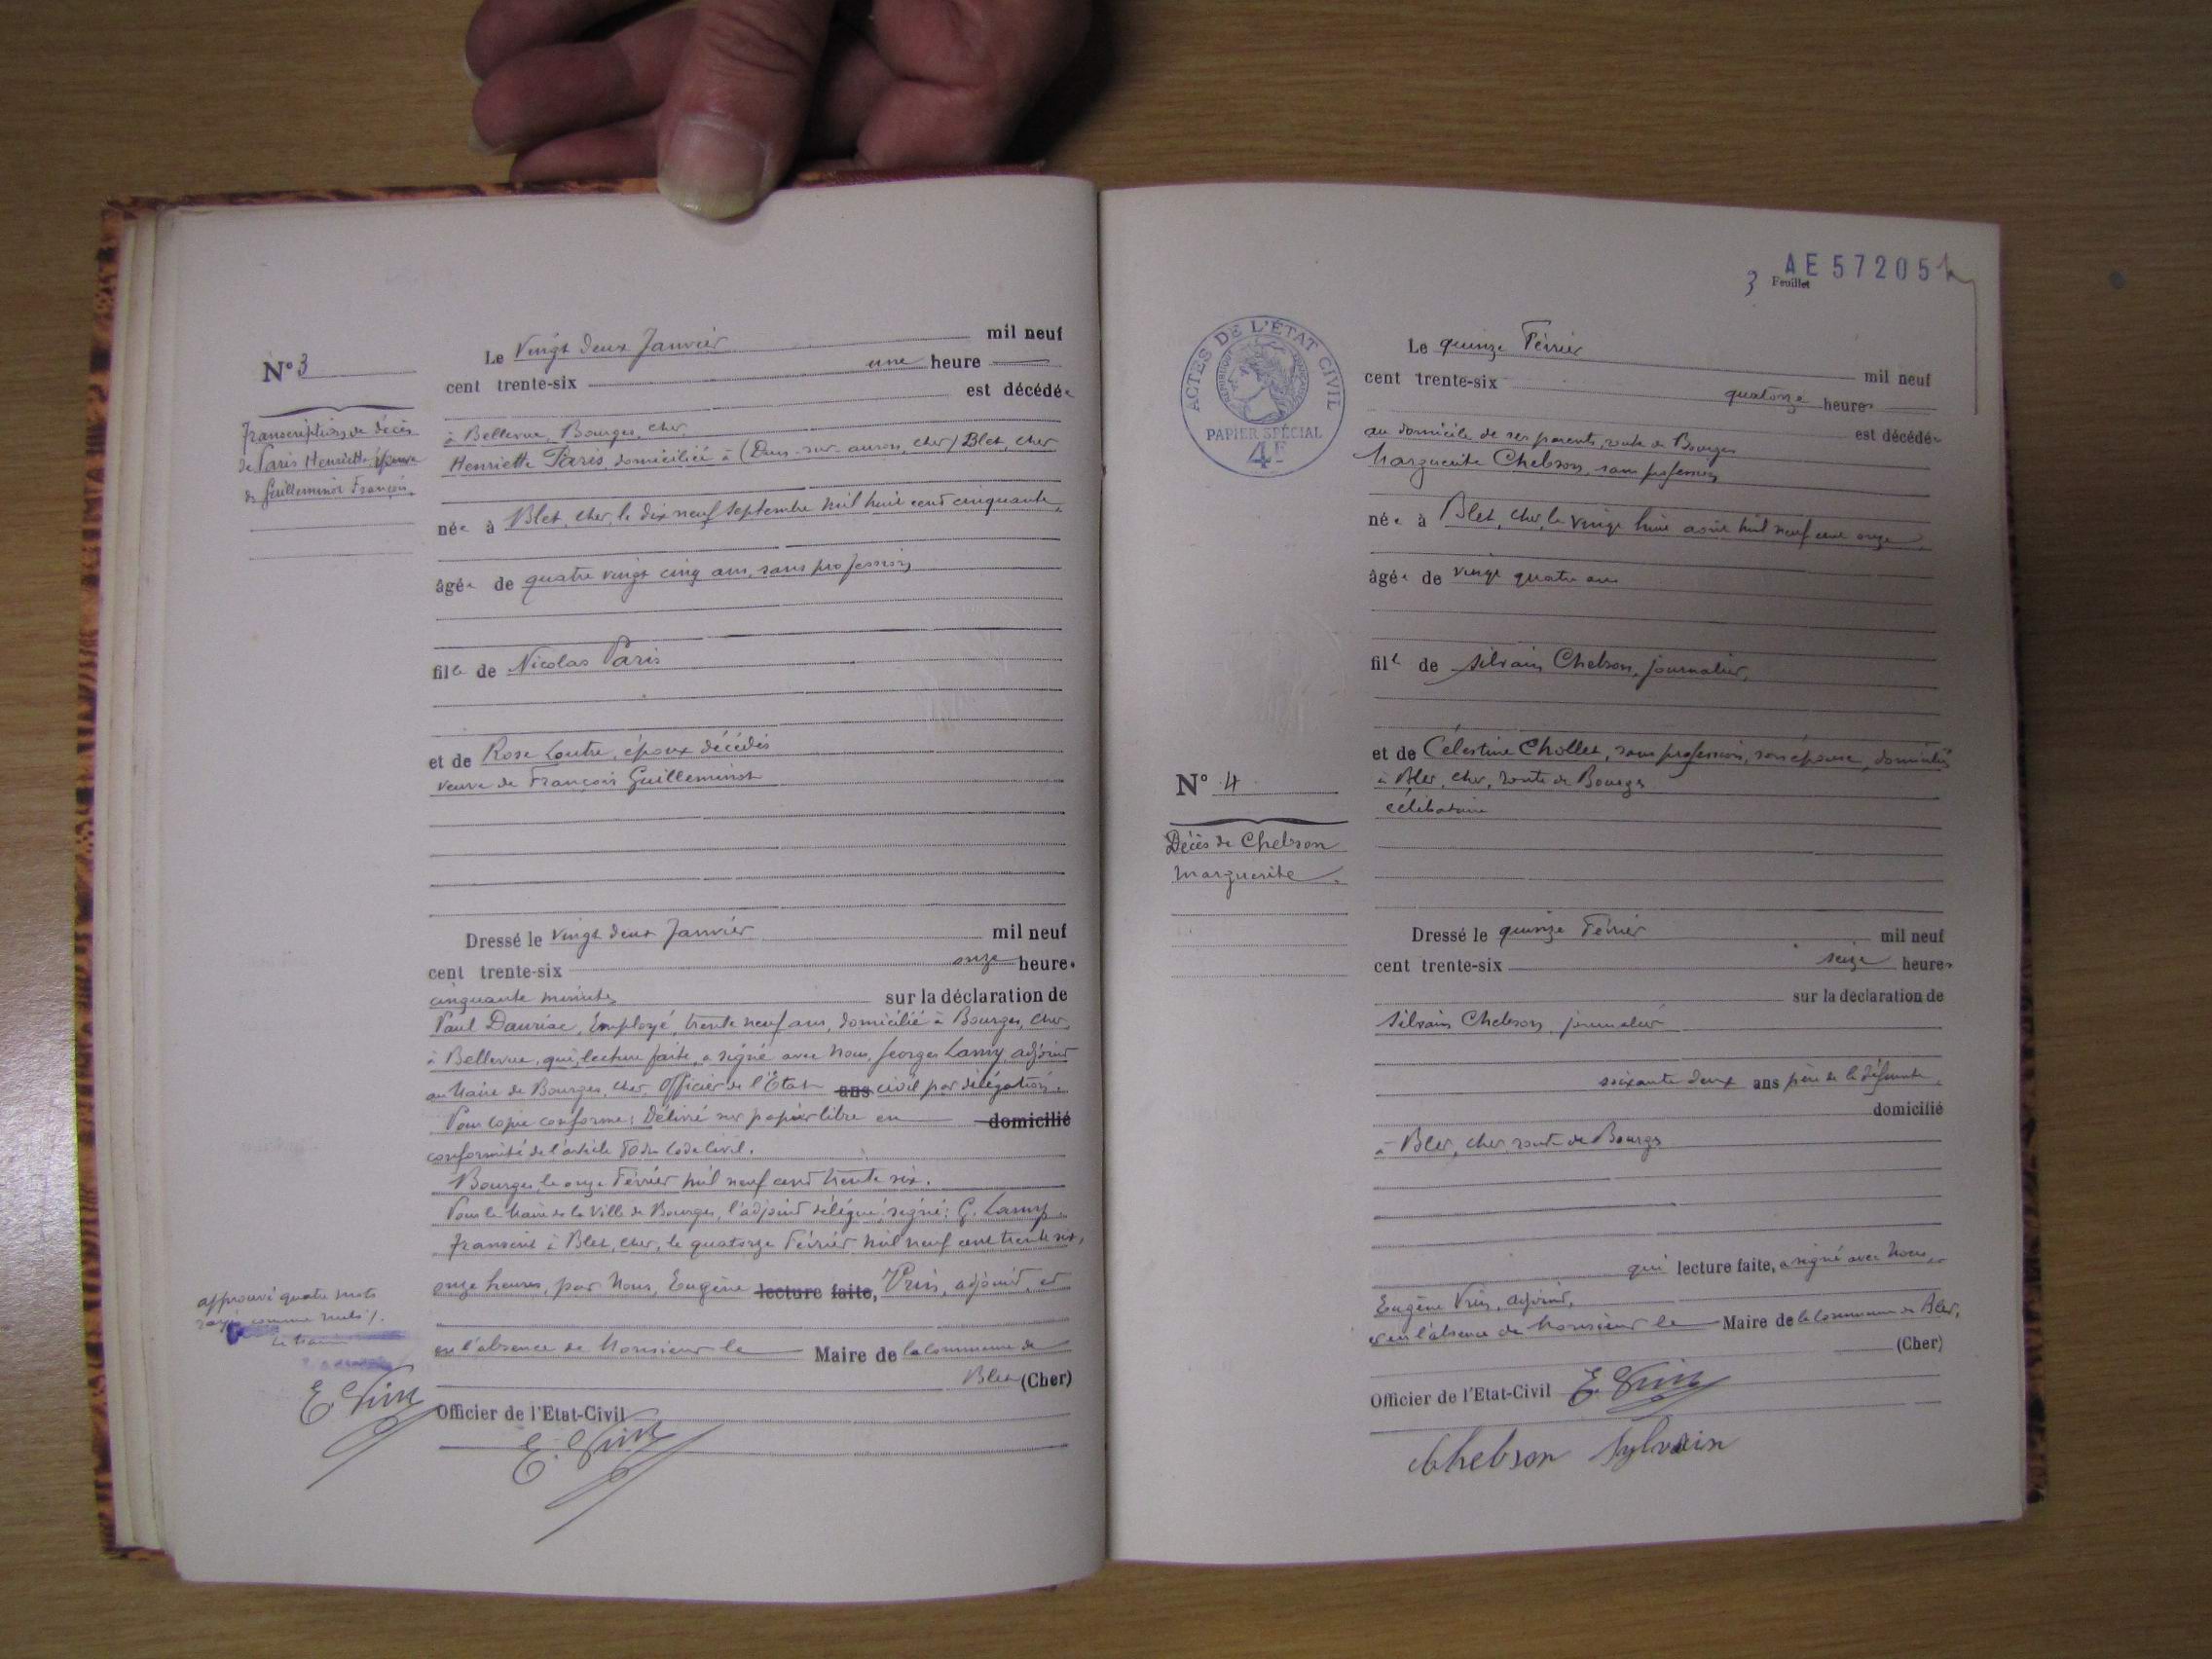 N° 3
Transcription de décès
de Paris Henriette épouse
de Guilleminot François
Le Vingt deux Janvier mil neuf
cent trente-six une heure
est décédée
à Bellevue, Bourges, Cher
Henriette Paris, domiciliée à (Dun-sur-auron, cher) Blet, cher
née à Blet, cher, le dix neuf Septembre mil huit cent cinquante,
âgée de quatre vingt cinq ans, sans profession,
fille de Nicolas Paris
et de Rose Loutre, époux décédés
veuve de François Guilleminot
Dressé le vingt deux Janvier mil neuf
cent trente-six onze heures
cinquante minutes sur la déclaration de
Paul Dauriac, Employé, trente neuf ans, domicilié à Bourges, Cher,
à Bellevue, qui, lecture faite, a signé avec Nous, Georges Lamy, adjoint
au Maire de Bourges, Cher, Officier de l'État ans civil par délégation.
Pour copie conforme: Délivré sur papier libre en domicilié
conformité de l'article du Code Civil.
Bourges, le onze Février mil neuf cent trente six.
Pour le Maire de la Ville de Bourges, l'adjoint délégué, signé: G. Lamy.
Transcrit à Blet, cher, le quatorze Février mil neuf cent trente six,
onze heures, par Nous, Eugène lecture faite, Vrin, adjoint, et
en l'absence de Monsieur le Maire de la Commune de
Blet (Cher)
Officier de l'Etat-Civil
E. Vrin
approuvé quatre mots
rayés comme nuls.
E. Vrin
AE 57205
3 Feuillet
ACTES DE L'ÉTAT CIVIL
RÉPUBLIQUE FRANÇAISE
PAPIER SPÉCIAL
4F
N° 4
Décès de Chebson
Marguerite
Le quinze Février mil neuf
cent trente-six quatorze heures
est décédée
au domicile de ses parents, route de Bourges
Marguerite Chebson, sans profession,
née à Blet, Cher, le vingt huit août mil neuf cent onze,
âgée de vingt quatre ans
fille de Silvain Chebson, journalier,
et de Célestine Chollet, sans profession, son épouse, domiciliés
à Blet, cher, route de Bourges
célibataire
Dressé le quinze Février mil neuf
cent trente-six seize heures
sur la déclaration de
Silvain Chebson, journalier
soixante deux ans père de la défunte,
domicilié
à Blet, cher, route de Bourges
qui lecture faite, a signé avec Nous,
Eugène Vrin, adjoint,
et en l'absence de Monsieur le Maire de la Commune de Blet,
(Cher)
Officier de l'Etat-Civil E. Vrin
Chebson Sylvain